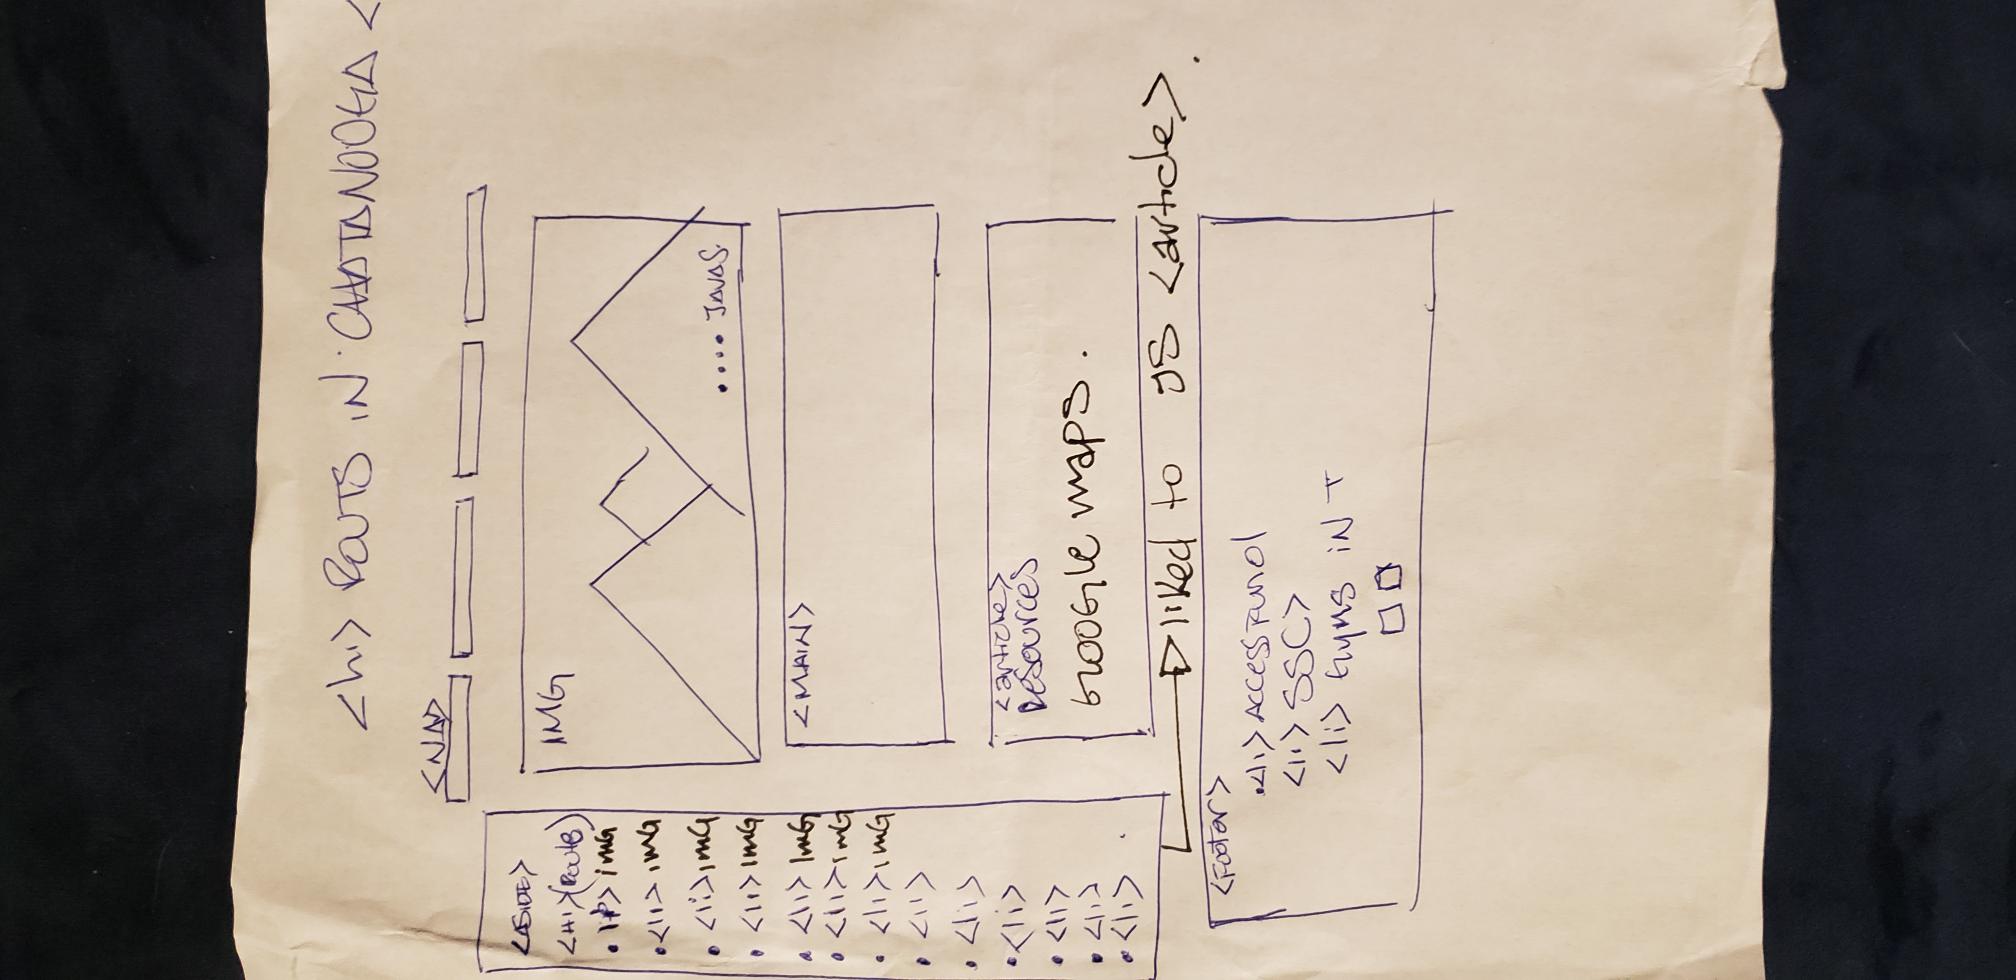 <h1> ROUTS IN CHATANOOGA <
<NAV>
<ASIDE>
<H1>(ROUTS)
IMG
<li> IMG
<li> IMG
<li> IMG
<li> IMG
<li> IMG
<li> IMG
<li>
<li>
<li>
<li>
<li>
<li>
IMG
.... JAVAS.
<MAIN>
<article>
Resources
GOOGle maps.
liked to JS <article>.
<Footer>
<li> ACCESS FUND
<li> SSC>
<li> Gyms iN T